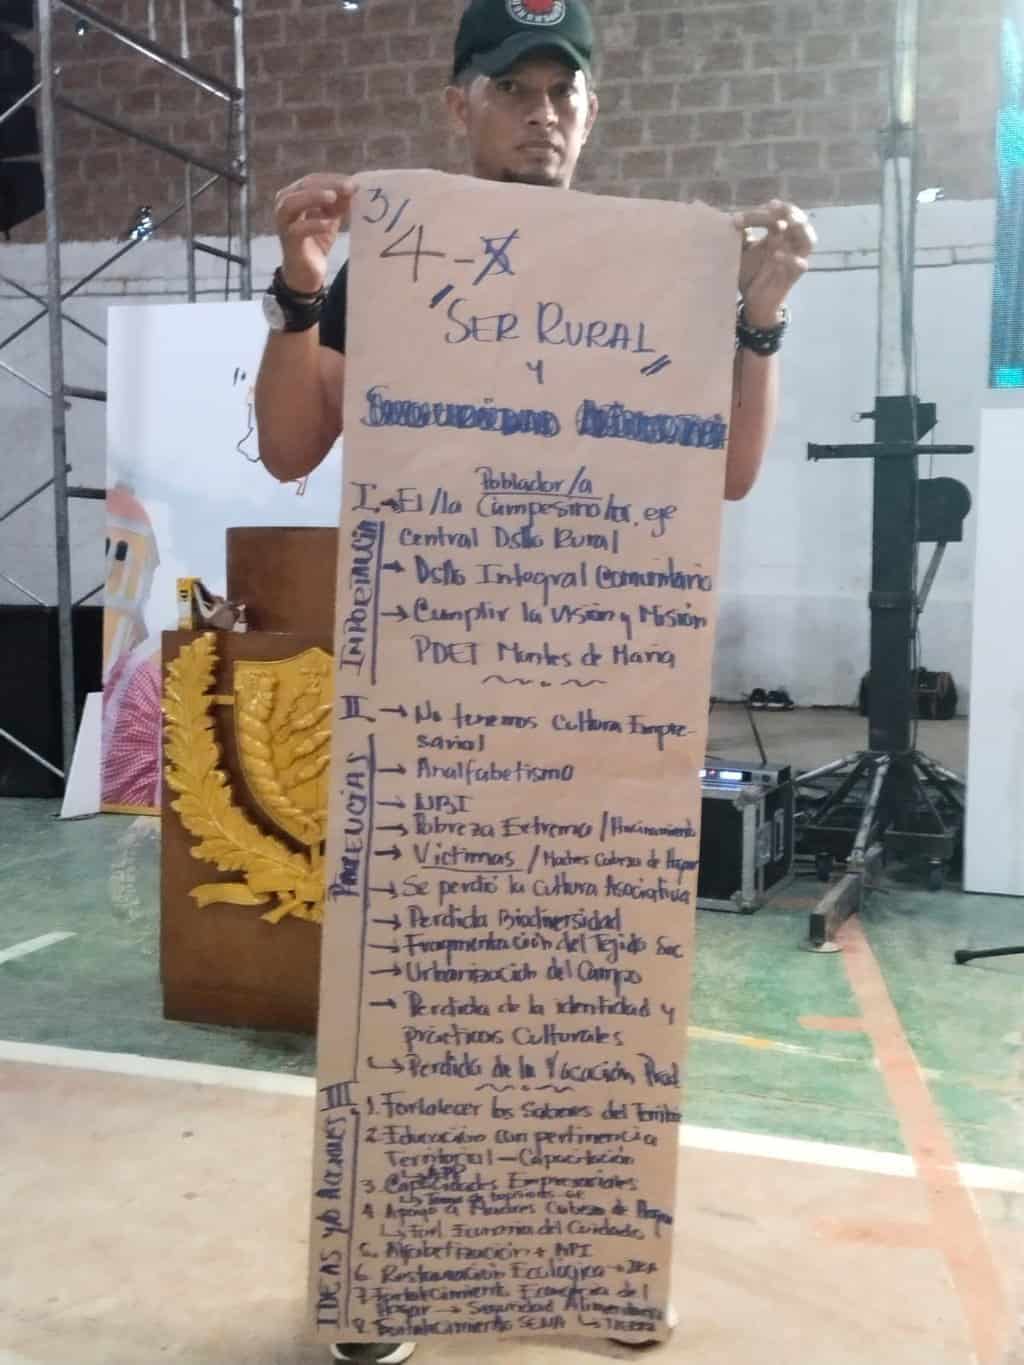 3/
4 - 5
"SER RURAL"
y
Poblador/a
I. → El/la Campesino/na, eje
central Dsllo Rural
→ Dsllo Integral Comunitario
→ Cumplir la Visión y Misión
PDET Montes de María
IMPORTANCIA
II. → No tenemos cultura Empre-
sarial
→ Analfabetismo
→ NBI
→ Pobreza Extrema / Hacinamiento
→ Víctimas / Madres Cabeza de Hogar
→ Se perdió la cultura Asociativa
→ Perdida Biodiversidad
→ Fragmentación del Tejido Soc
→ Urbanización del Campo
→ Perdida de la identidad y
prácticas Culturales
→ Perdida de la Vocación Prod.
III
1. Fortalecer los Saberes del Territo
2. Educación con pertinencia
Territorial - Capacitación
↳ APP
3. Capacidades Empresariales
4. Apoyo a Madres Cabeza de Hogar
↳ Fort. Economía del Cuidado
5. Alfabetización + API
6. Restauración Ecológica →
7. Fortalecimiento Economía del
Hogar → Seguridad Alimentaria
8. Fortalecimiento SENA ↳
IDEAS y/o ACCIONES